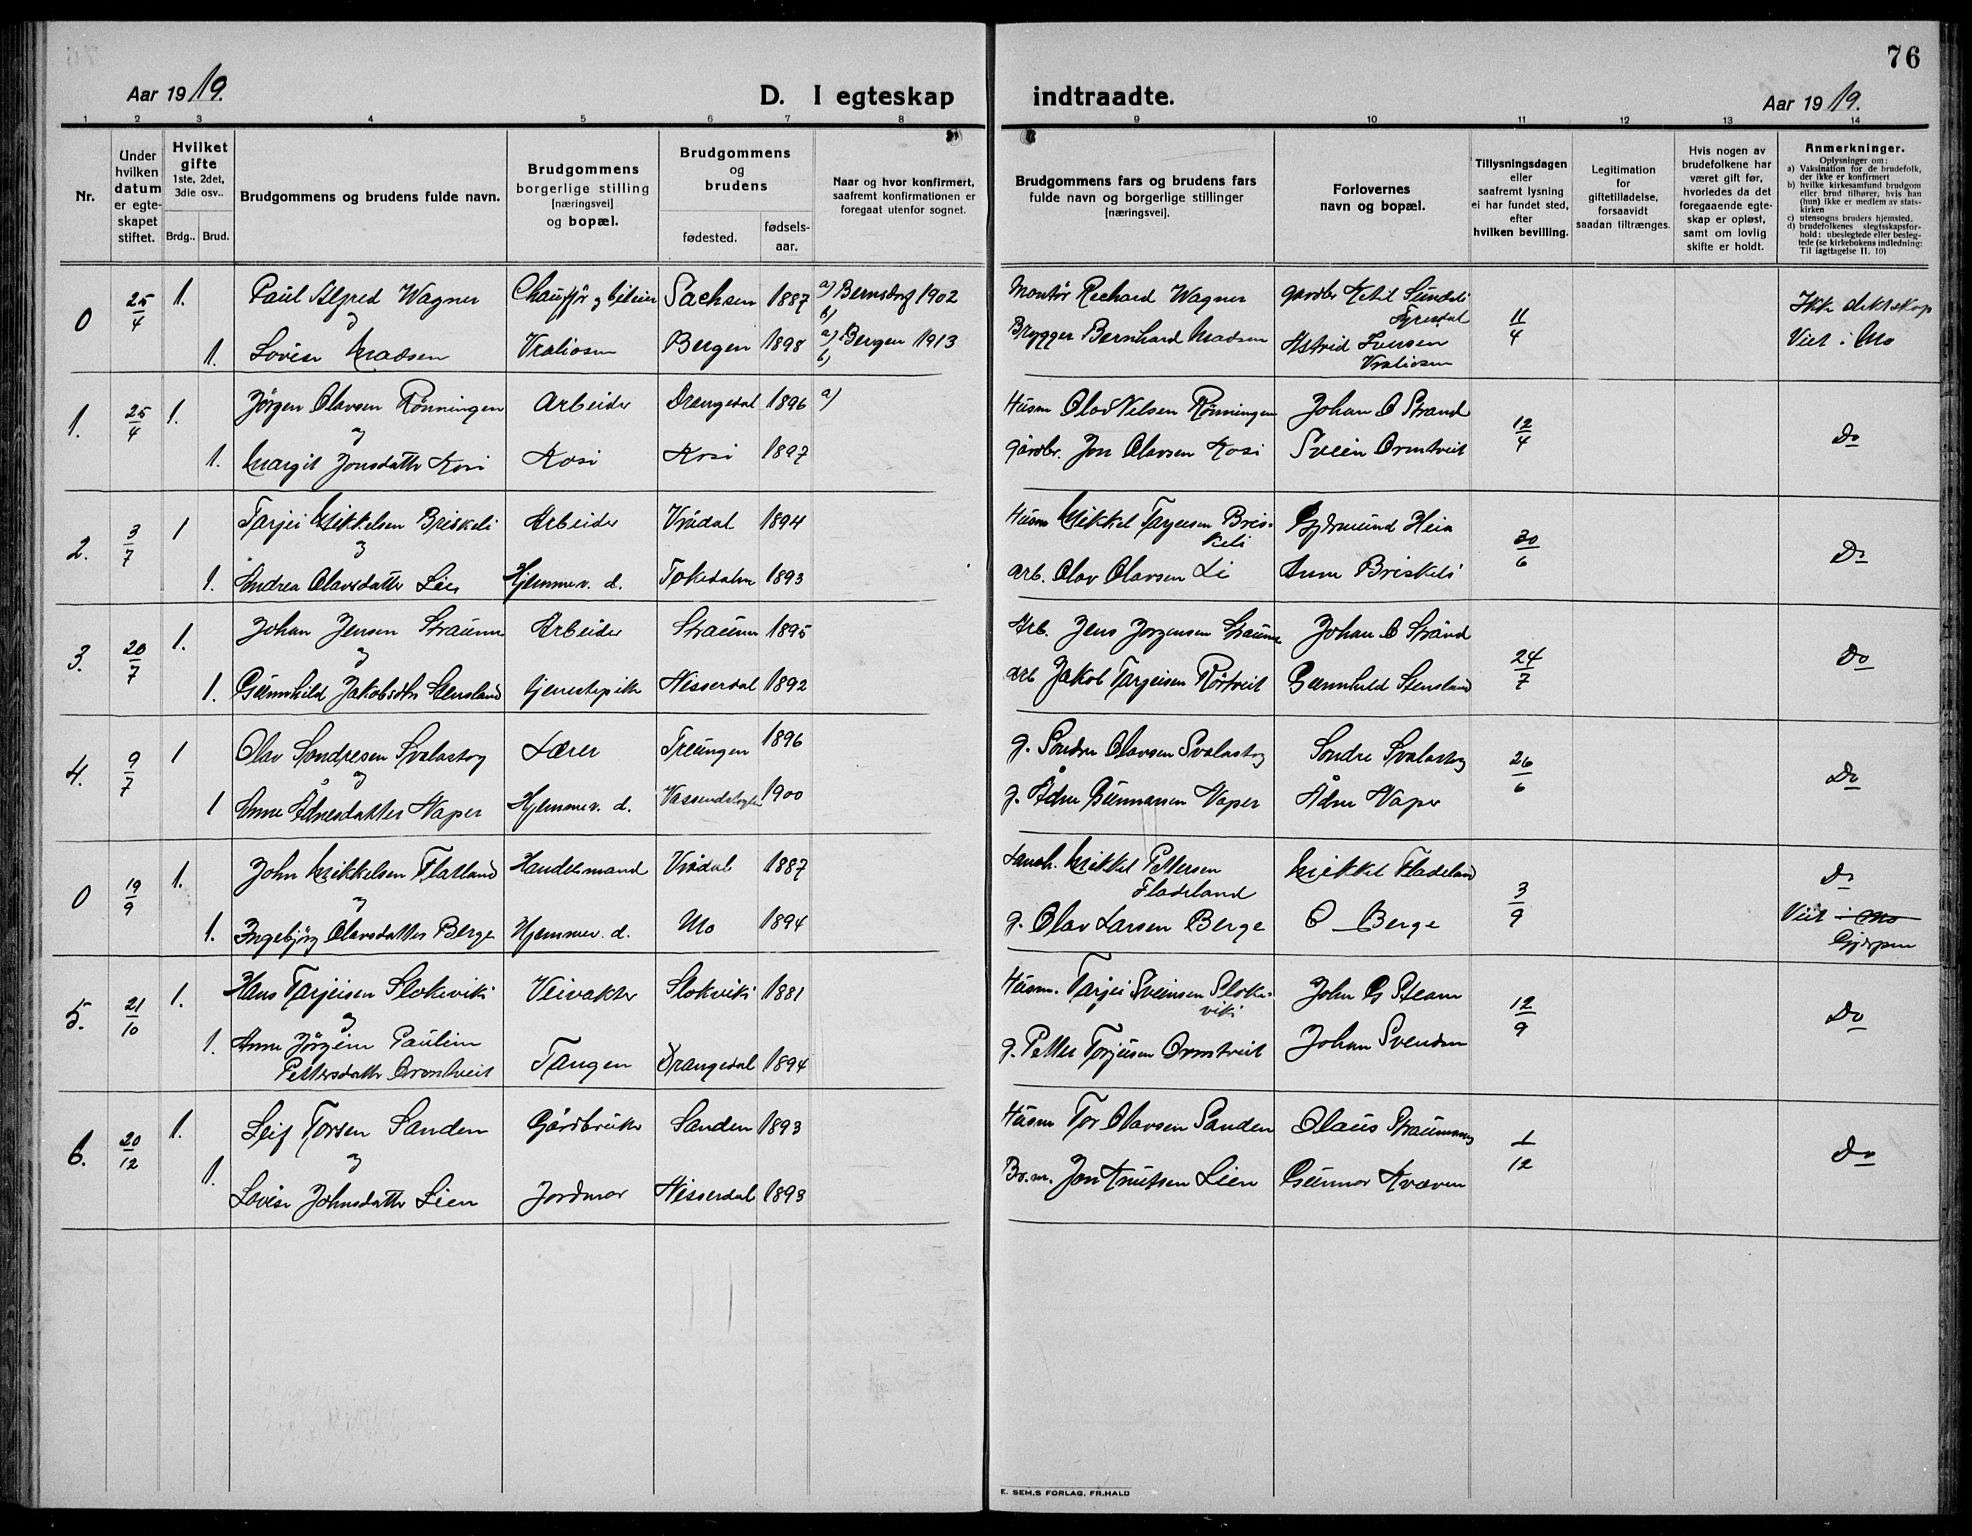 76
Aar 1919.
D. I egteskap indtraadte.
Aar 1919.
1 2 3 4 5 6 7 8 9 10 11 12 13 14
Nr.
Under hvilken datum er egteskapet stiftet.
Hvilket gifte 1ste, 2det, 3die osv..
Brdg.. Brud.
Brudgommens og brudens fulde navn.
Brudgommens borgerlige stilling [næringsvei] og bopæl.
Brudgommens og brudens
fødested.
fødsels-aar.
Naar og hvor konfirmert, saafremt konfirmationen er foregaat utenfor sognet.
Brudgommens fars og brudens fars fulde navn og borgerlige stillinger [næringsvei].
Forlovernes navn og bopæl.
Tillysningsdagen eller saafremt lysning ei har fundet sted, efter hvilken bevilling.
Legitimation for giftetilladelse, forsaavidt saadan tiltrænges.
Hvis nogen av brudefolkene har været gift før, hvorledes da det foregaaende egteskap er opløst, samt om lovlig skifte er holdt.
Anmerkninger.
Oplysninger om:
a) Vaksination for de brudefolk, der ikke er konfirmert
b) hvilke kirkesamfund brudgom eller brud tilhører, hvis han (hun) ikke er medlem av statskirken
c) utensogns bruders hjemsted.
d) brudefolkenes slegtsskapsforhold; ubeslegtede eller beslegtede (se kirkebokens indledning: Til iagttagelse II. 10)
0 25/4 1. Paul Alfred Wagner Chauffør og bileier Sachsen 1887 a) Bernsdorf 1902 b) Montør Rechard Wagner gardbr Ketil Sundsli Fyresdal 11/4 Ikke slektskap
og
1. Lovise Madsen Vraliosen Bergen 1898 a) Bergen 1913 b) Brygger Bernhard Madsen Astrid Iversen Vraliosen Viet i Mo
1. 25/4 1. Jörgen Olavsen Rönningen Arbeider Drangedal 1896 a) Husm Olav Nilsen Rönningen Johan O Strand 12/4 Do
og
1. Margit Jonsdatter Kosi Kosi Kosi 1897 Gårdbr. Jon Olavsen Kosi Svein Ormtveit
2. 3/7 1 Tarjei Mikkelsen Briskeli Arbeider Vrådal 1894 Husm Mikkel Tarjeisen Briskeli Gjermund Heia 30/6 Do
og
1. Andrea Olavsdatter Lien Hjemmev. d. Tokedalen 1893 Arb. Olav Olavsen Li Anne Briskeli
3. 20/7 1. Johan Jensen Straume Arbeider Straume 1895 Arb. Jens Jorgensen Straume Johan O Strånd 24/7 Do
og
1. Gunnhild Jakobsdtr Stensland tjenestepike Nisserdal 1892 Arb Jakob Tarjeisen Rörtveit Gunnhild Stensland
4. 9/7 1 Olav Sondresen Svalastog Lærer Treungen 1896 g. Sondre Olavsen Svalastog Sondre Svalastog 26/6 Do
og
1 Anne Ådnesdatter Vaper Hjemmev. d. 1900 g. Ådne Gunnarsen Vaper Ådne Vaper
0 19/9 1. John Mikkelsen Flatland Handelsmand Vrådal 1887 Mikkel Pettersen Fladeland Mikkel Fladeland 3/9 Do
og
1. Ingebjörg Olavsdatter Berge Hjemmev. d. Mo 1894 g. Olav Larsen Berge O Berge Viet i Mo Gjerpen
5. 21/10 1. Hans Tarjeisen Slokviki Veivakter Slokviki 1881 Husm. Tarjei Sveinsen Slokviki John G Steane 12/9 Do
og
1. Anne Jörgine Pauline Pettersdatter Ormtveit Tangen Drangedal 1894 g. Petter Torjusen Ormtveit Johan Svendsen
6. 20/12 1. Leif Torsen Sanden Gårdbruker Sanden 1893 Husm Tor Olavsen Sanden Olaus Straumsnes 1/12 Do
og
1. Lovise Johnsdatter Lien Jordmor Nisserdal 1893 Br.m. Jon Knutsen Lien Gunnar Kvæven
E. SEM,S FORLAG, FR.HALD